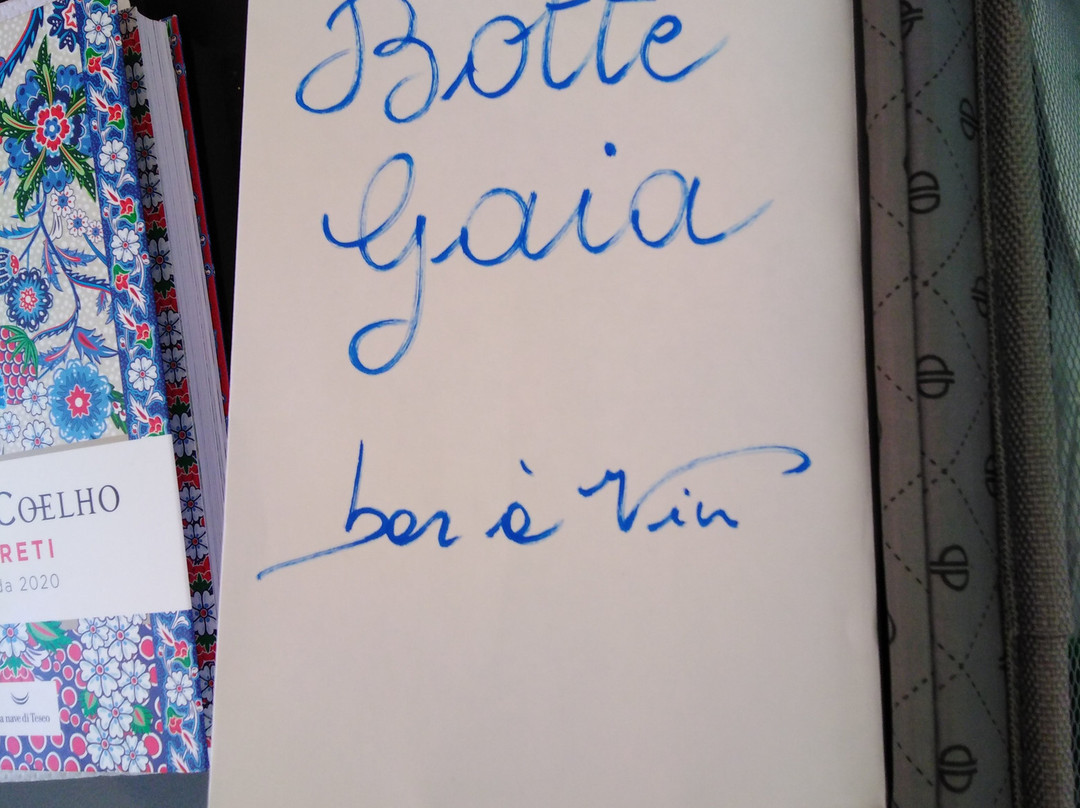 Botte
Gaia
bar à Vin
COELHO
RETI
da 2020
a nave di Teseo